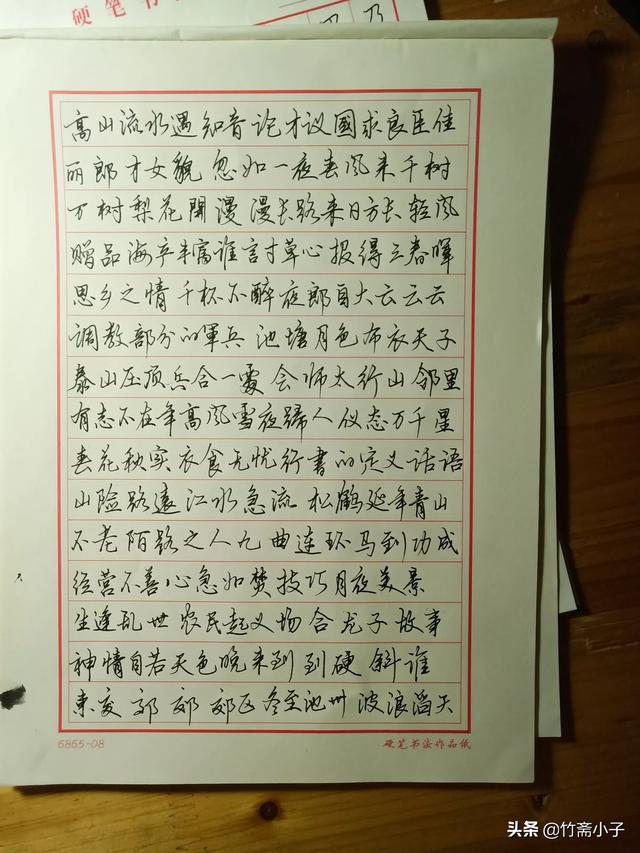 硬笔书
乃
高山流水遇知音论才议國求良臣佳
丽郎才女貌忽如一夜春风来千树
万树梨花開漫漫长路来日方长轻风
赠品海产丰富谁言寸草心报得三春晖
思乡之情千杯不醉夜郎自大云云云
调教部分的軍兵池塘月色布衣天子
泰山压顶兵合一處会师太行山邻里
有志不在年高风雪夜歸人仪态万千星
春花秋实衣食无忧行書的定义话语
山险路遠江水急流松鹤延年青山
不老陌路之人九曲连环马到功成
经营不善心急如焚技巧月夜美景
生逢乱世农民起义场合龙子故事
神情自若天色晚来到到硬斜谁
東友郭郊郊区冬至池州波浪滔天
6865-08
硬笔书法作品纸
头条@竹斋小子